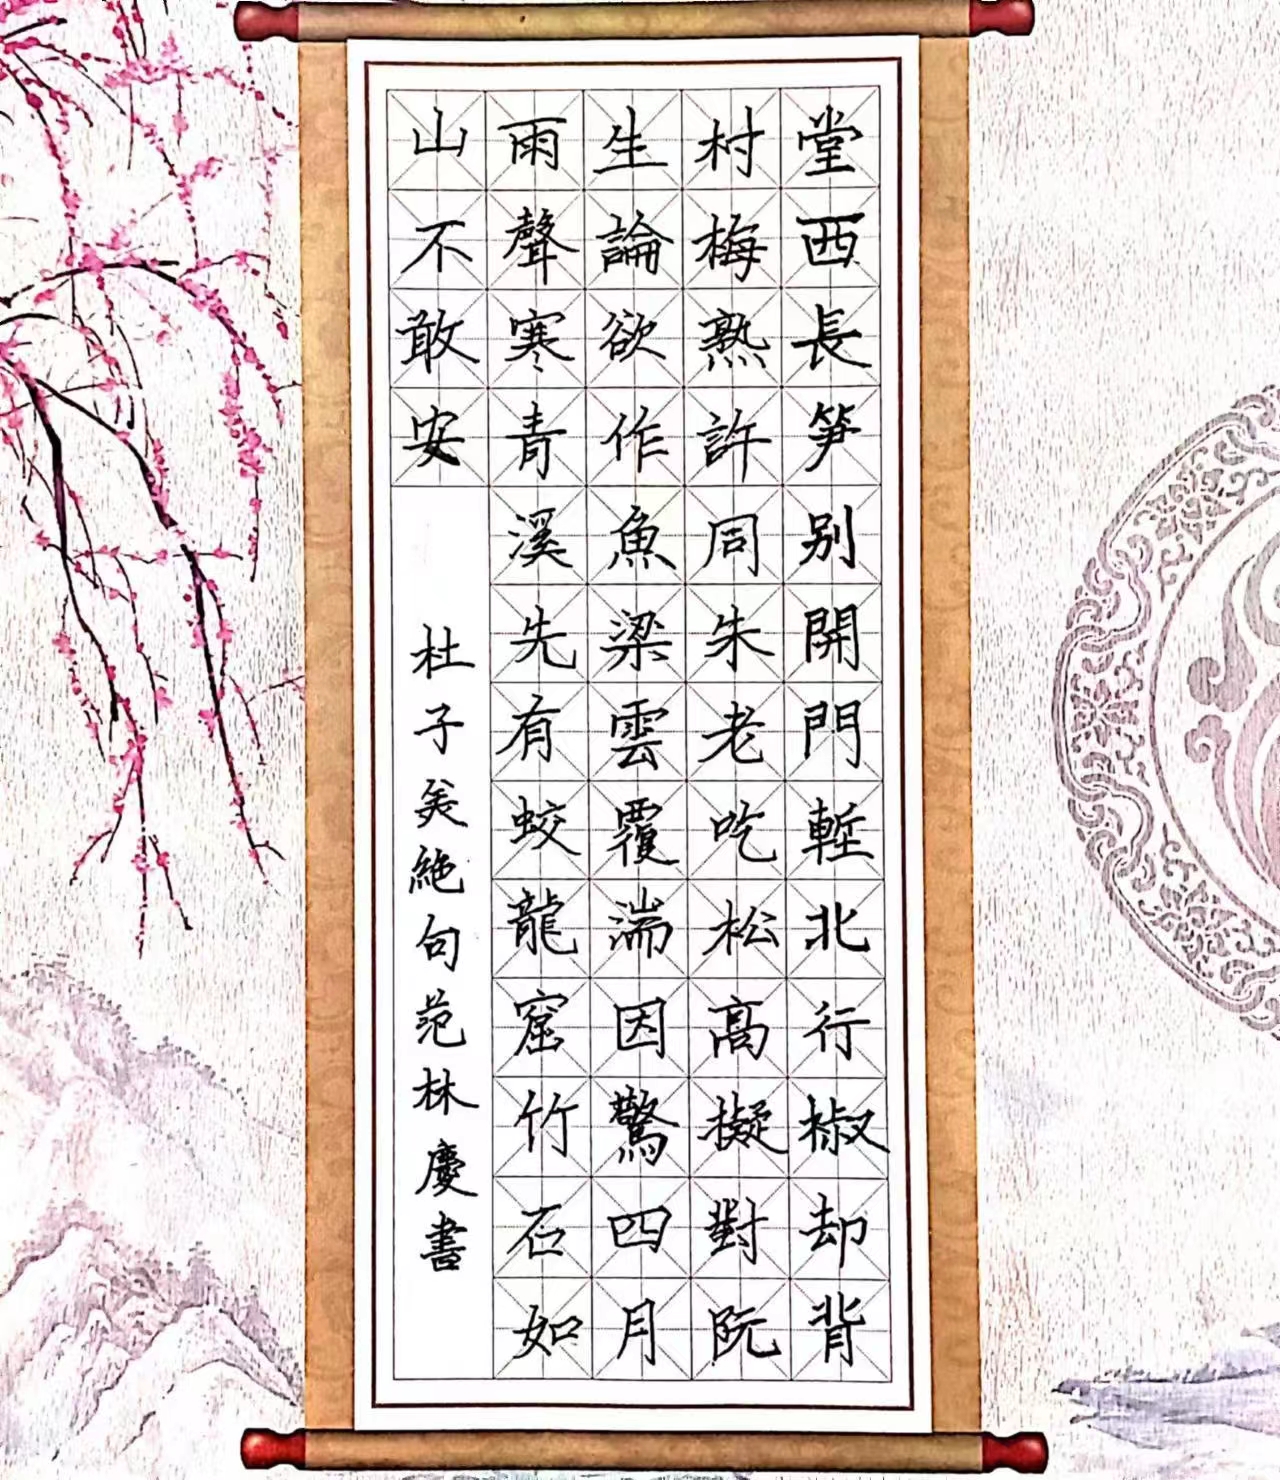 堂西長笋别開門塹北行椒却背
村梅熟許同朱老吃松高擬對阮
生論欲作魚梁雲覆湍因驚四月
雨聲寒青溪先有蛟龍窟竹石如
山不敢安
杜子美絶句范林慶書